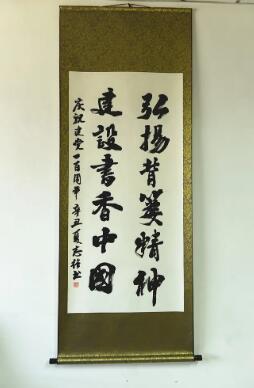 弘揚背篓精神
建設書香中國
庆祝建党一百周年 辛丑夏志佳书